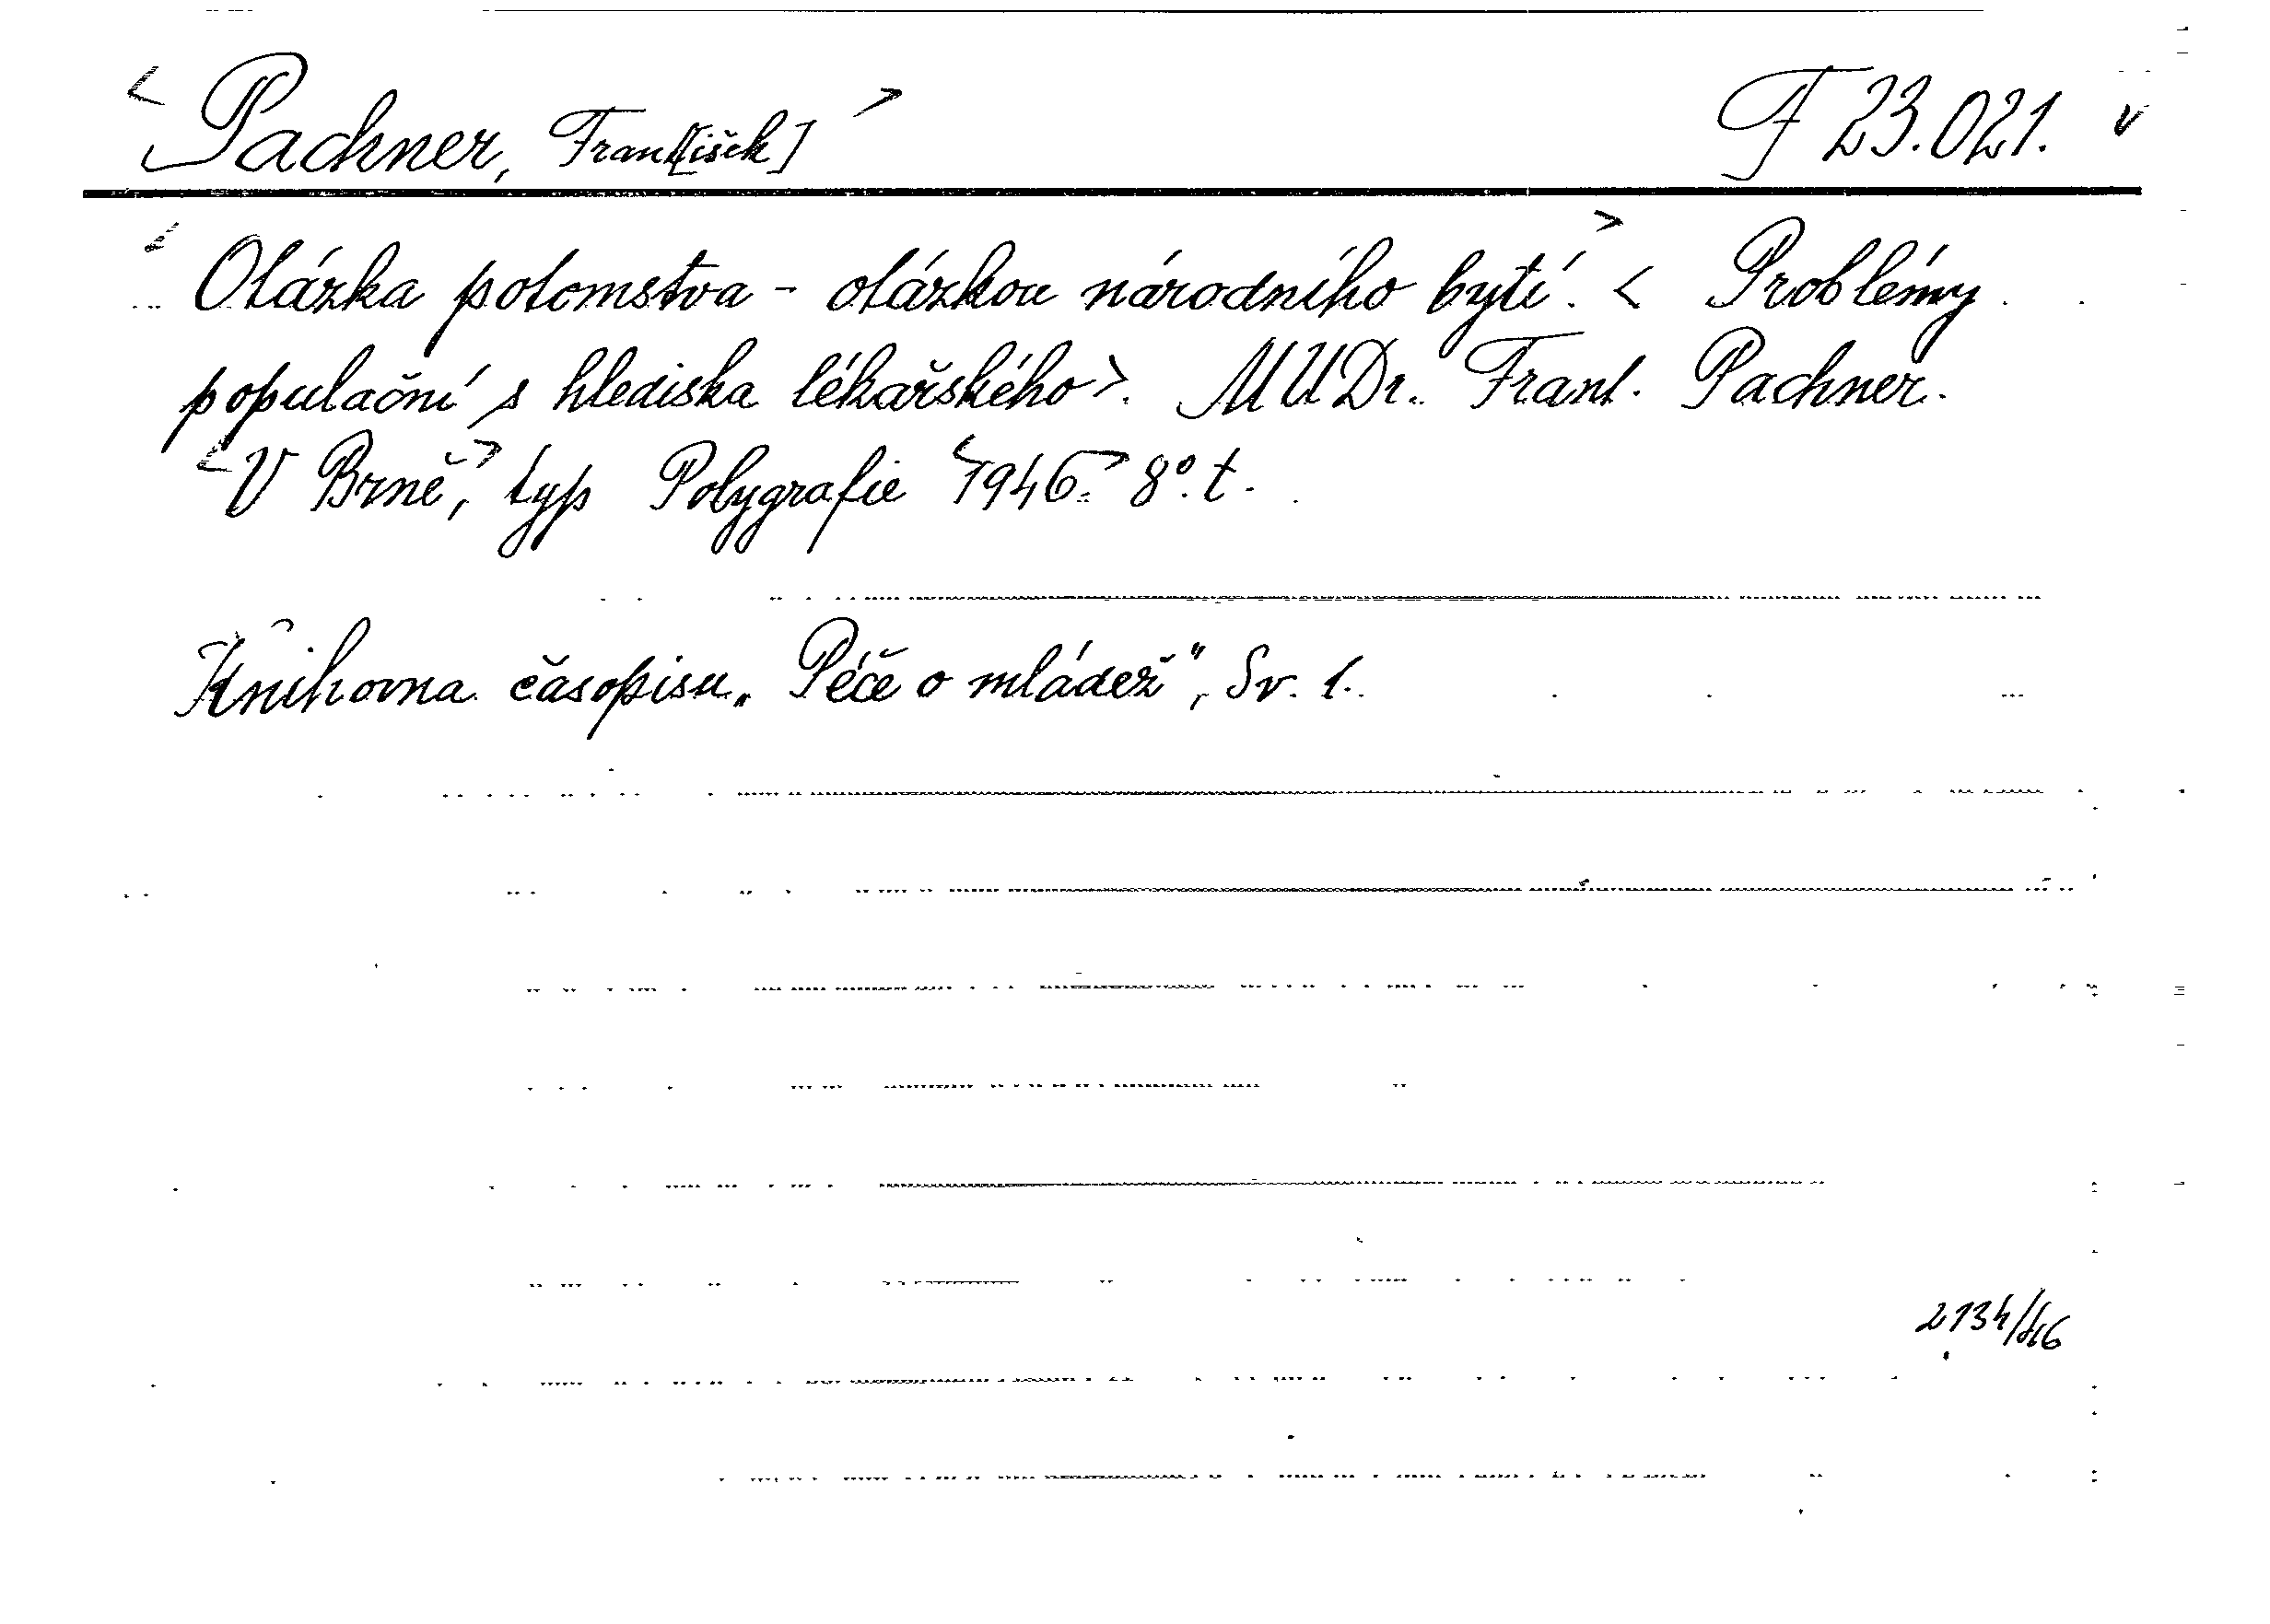 < Pachner, Frant[išek] > F 23.021. v
< Otázka potomstva - otázkou národního bytí. > < Problémy
populační s hlediska lékařského >. MUDr. Frant. Pachner.
< V Brně, > typ Polygrafie < 1946. > 8°. t.
Knihovna časopisu „Péče o mládež", Sv. 1.
2134/46